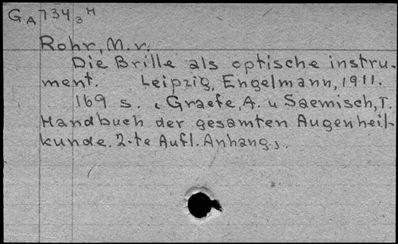 GA 734 3 H
Rohr, M. v.
Die Brille als optische instru-
ment. Leipzig, Engelmann, 1911.
169 s. (Graefe, A. u Saemisch, T.
Handbuch der gesamten Augenheil-
kunde. 2-te Aufl. Anhang).